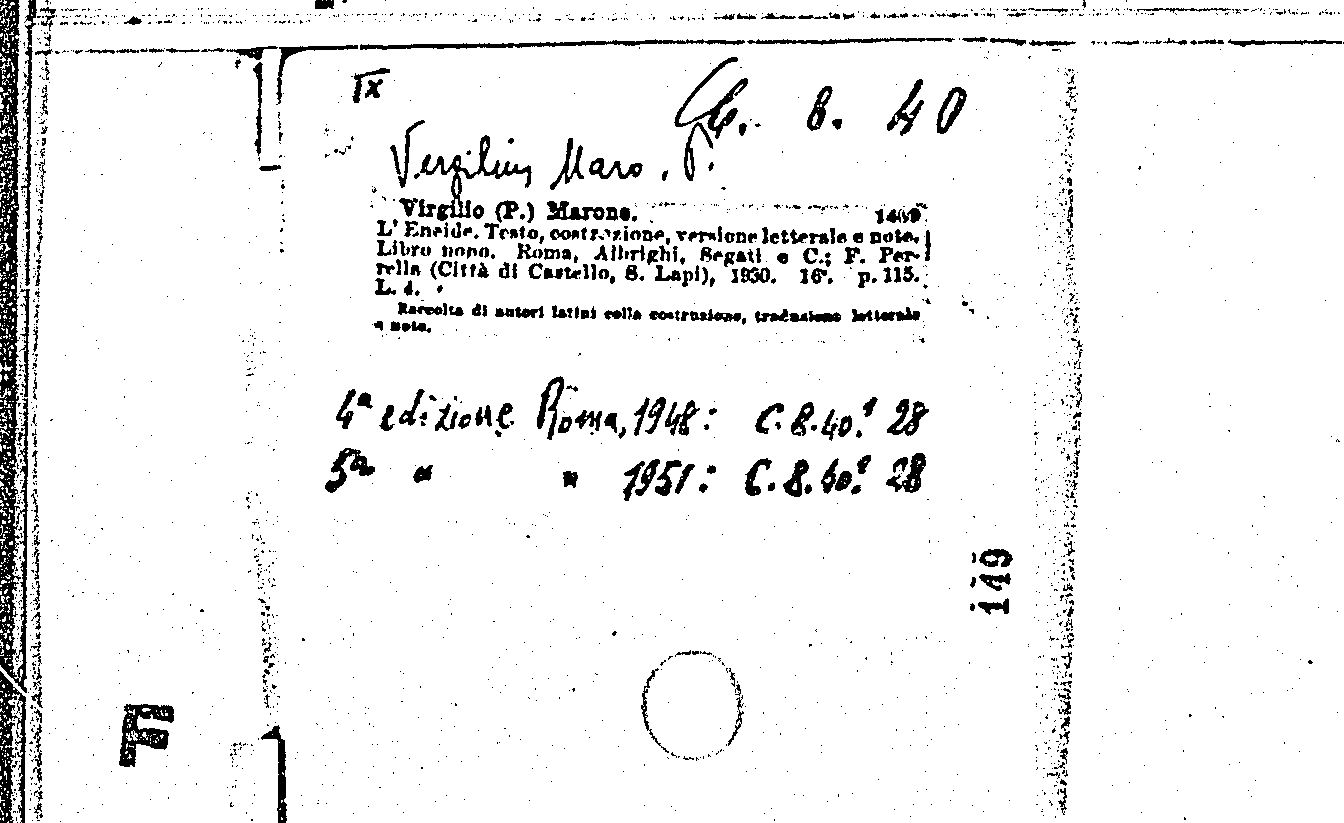 IX
C. 8. 40
Vergilius Maro, P.
Virgilio (P.) Marone.
L' Eneide. Testo, costruzione, versione letterale e note.
Libro nono. Roma, Albrighi, Segati e C.; F. Per-
rella (Città di Castello, S. Lapi), 1930. 16°. p. 115.
L. 4.
Raccolta di autori latini colla costruzione, traduzione letterale
e note.
4ª edizione Roma, 1948: C. 8. 40.1 28
5ª " " 1951: C. 8. 40.2 28
149
F